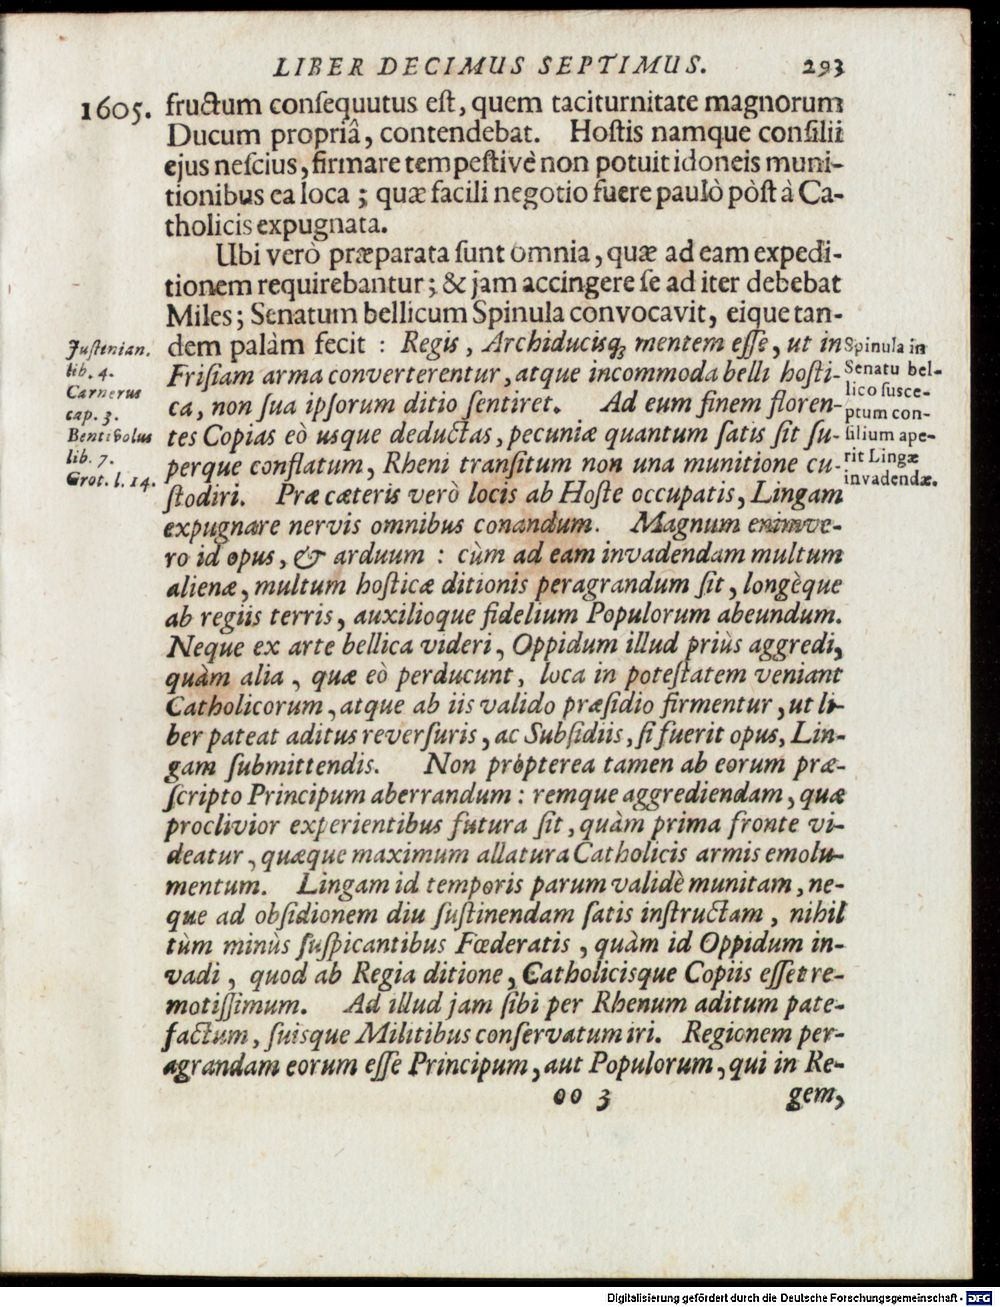 LIBER DECIMUS SEPTIMUS. 293
1605.
fructum conſequutus eſt, quem taciturnitate magnorum
Ducum propriâ, contendebat. Hoſtis namque conſilii
ejus neſcius, firmare tempeſtivè non potuit idoneis muni-
tionibus ea loca ; quæ facili negotio fuere paulò pòſt à Ca-
tholicis expugnata.
Ubi verò præparata ſunt omnia, quæ ad eam expedi-
tionem requirebantur ; & jam accingere ſe ad iter debebat
Miles ; Senatum bellicum Spinula convocavit, eique tan-
dem palàm fecit : Regis, Archiducisq; mentem eſſe, ut in
Friſiam arma converterentur, atque incommoda belli hoſti-
ca, non ſua ipſorum ditio ſentiret. Ad eum finem floren-
tes Copias eò usque deductas, pecuniæ quantum ſatis ſit ſu-
perque conflatum, Rheni tranſitum non una munitione cu-
ſtodiri. Præ cæteris verò locis ab Hoſte occupatis, Lingam
expugnare nervis omnibus conandum. Magnum enimve-
ro id opus, & arduum : cùm ad eam invadendam multum
alienæ, multum hoſticæ ditionis peragrandum ſit, longèque
ab regiis terris, auxilioque fidelium Populorum abeundum.
Neque ex arte bellica videri, Oppidum illud priùs aggredi,
quàm alia, quæ eò perducunt, loca in poteſtatem veniant
Catholicorum, atque ab iis valido præſidio firmentur, ut li-
ber pateat aditus reverſuris, ac Subſidiis, ſi fuerit opus, Lin-
gam ſubmittendis. Non propterea tamen ab eorum præ-
ſcripto Principum aberrandum : remque aggrediendam, quæ
proclivior experientibus futura ſit, quàm prima fronte vi-
deatur, quæque maximum allatura Catholicis armis emolu-
mentum. Lingam id temporis parum validè munitam, ne-
que ad obſidionem diu ſuſtinendam ſatis inſtructam, nihil
tùm minùs ſuſpicantibus Fœderatis, quàm id Oppidum in-
vadi, quod ab Regia ditione, Catholicisque Copiis eſſet re-
motiſſimum. Ad illud jam ſibi per Rhenum aditum pate-
factum, ſuisque Militibus conſervatum iri. Regionem per-
agrandam eorum eſſe Principum, aut Populorum, qui in Re-
oo 3 gem,
Juſtinian.
lib. 4.
Carnerus
cap. 3.
Bentivolus
lib. 7.
Grot. l. 14.
Spinula in
Senatu bel-
lico ſusce-
ptum con-
ſilium ape-
rit Lingæ
invadendæ.
Digitalisierung gefördert durch die Deutsche Forschungsgemeinschaft - DFG